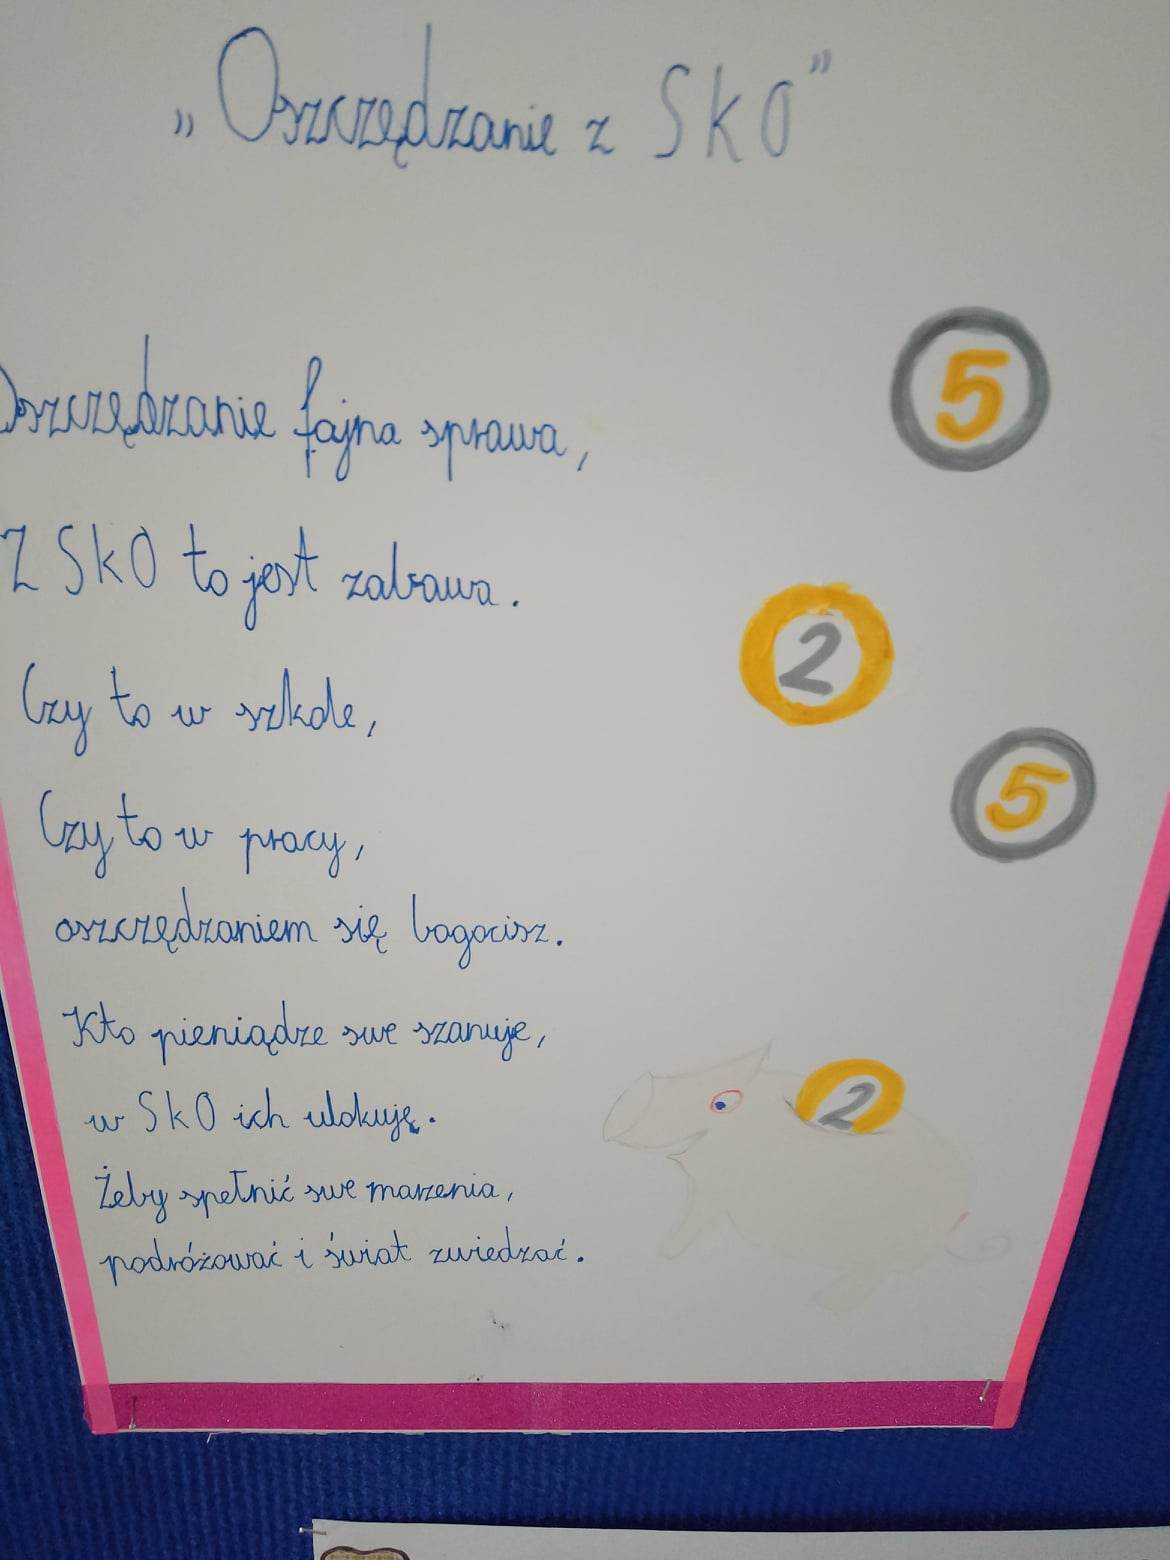 „Oszczędzanie z SKO”
Oszczędzanie fajna sprawa,
5
Z SKO to jest zabawa.
2
Czy to w szkole,
5
Czy to w pracy,
oszczędzaniem się bogacisz.
Kto pieniądze swe szanuje,
2
w SKO ich ulokuję.
Żeby spełnić swe marzenia,
podróżować i świat zwiedzać.